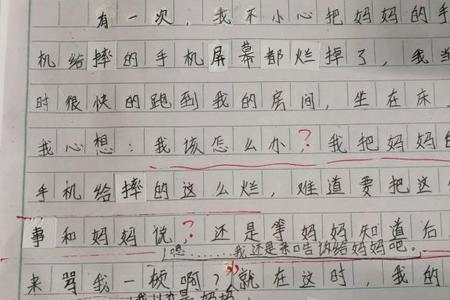 有一次，我不小心把妈妈的手
机给摔的手机屏幕都烂掉了，我当
时很快的跑到我的房间，坐在床
我心想：我该怎么办？我把妈妈的
手机给摔的这么烂，难道要把这
事和妈妈说？还是等妈妈知道后
嗯……我还是来告诉给妈妈吧。
来骂我一顿啊？就在这时，我的